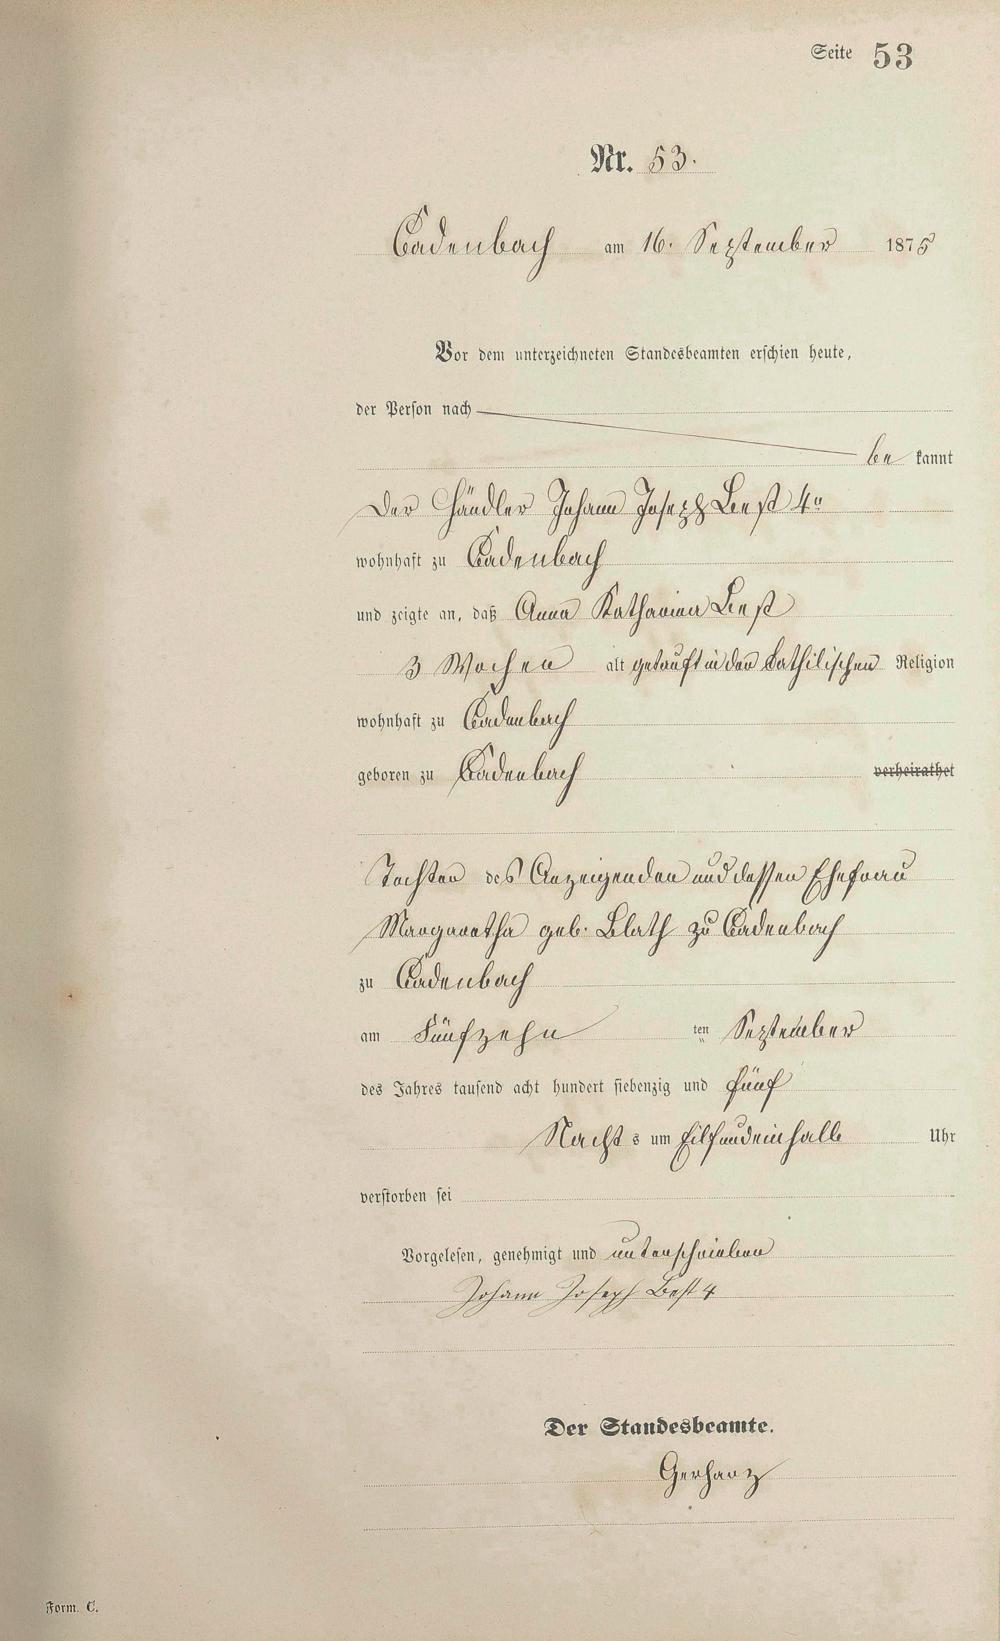 Seite 53
Nr. 53.
Cadenbach am 16. September 1875
Vor dem unterzeichneten Standesbeamten erschien heute,
der Person nach
be kannt
der Händler Johann Joseph Best 4"
wohnhaft zu Cadenbach
und zeigte an, daß Anna Katharina Best
3 Wochen alt getauft in der kathilischen Religion
wohnhaft zu Cadenbach
geboren zu Cadenbach verheirathet
Tochter des Anzeigenden und dessen Ehefrau
Margaretha geb. Blath zu Cadenbach
zu Cadenbach
am Fünfzehn ten September
des Jahres tausend acht hundert siebenzig und fünf
Nacht s um Eilfundeinhalb Uhr
verstorben sei
Vorgelesen, genehmigt und unterschrieben
Johann Joseph Best 4
Der Standesbeamte.
Gerharz
Form. C.